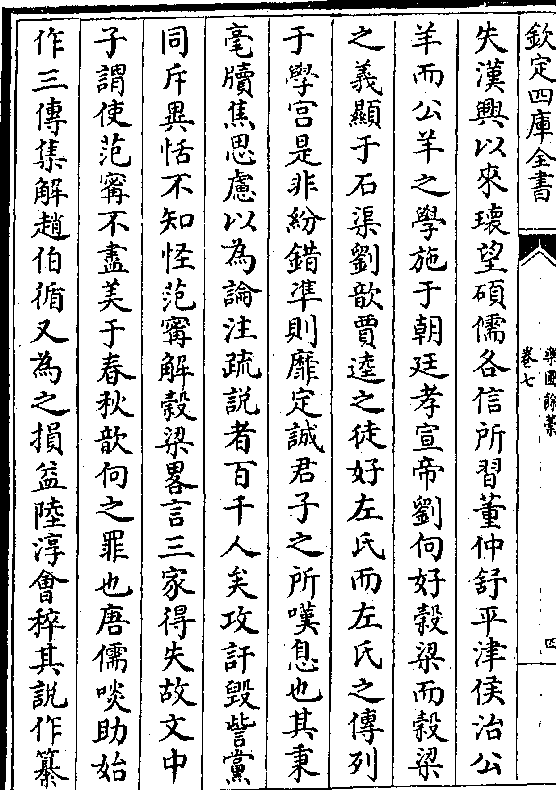 欽定四庫全書
樂圃餘藁
卷七
四
失漢興以來瓌望碩儒各信所習董仲舒平津侯治公
羊而公羊之學施于朝廷孝宣帝劉向好榖梁而榖梁
之義顯于石渠劉歆賈逵之徒好左氏而左氏之傳列
于學宫是非紛錯凖則靡定誠君子之所嘆息也其秉
毫牘焦思慮以為論注疏説者百千人矣攻訐毁訾黨
同斥異恬不知怪范甯解榖梁畧言三家得失故文中
子謂使范甯不盡美于春秋歆向之罪也唐儒啖助始
作三傳集解趙伯循又為之損益陸淳會稡其説作纂